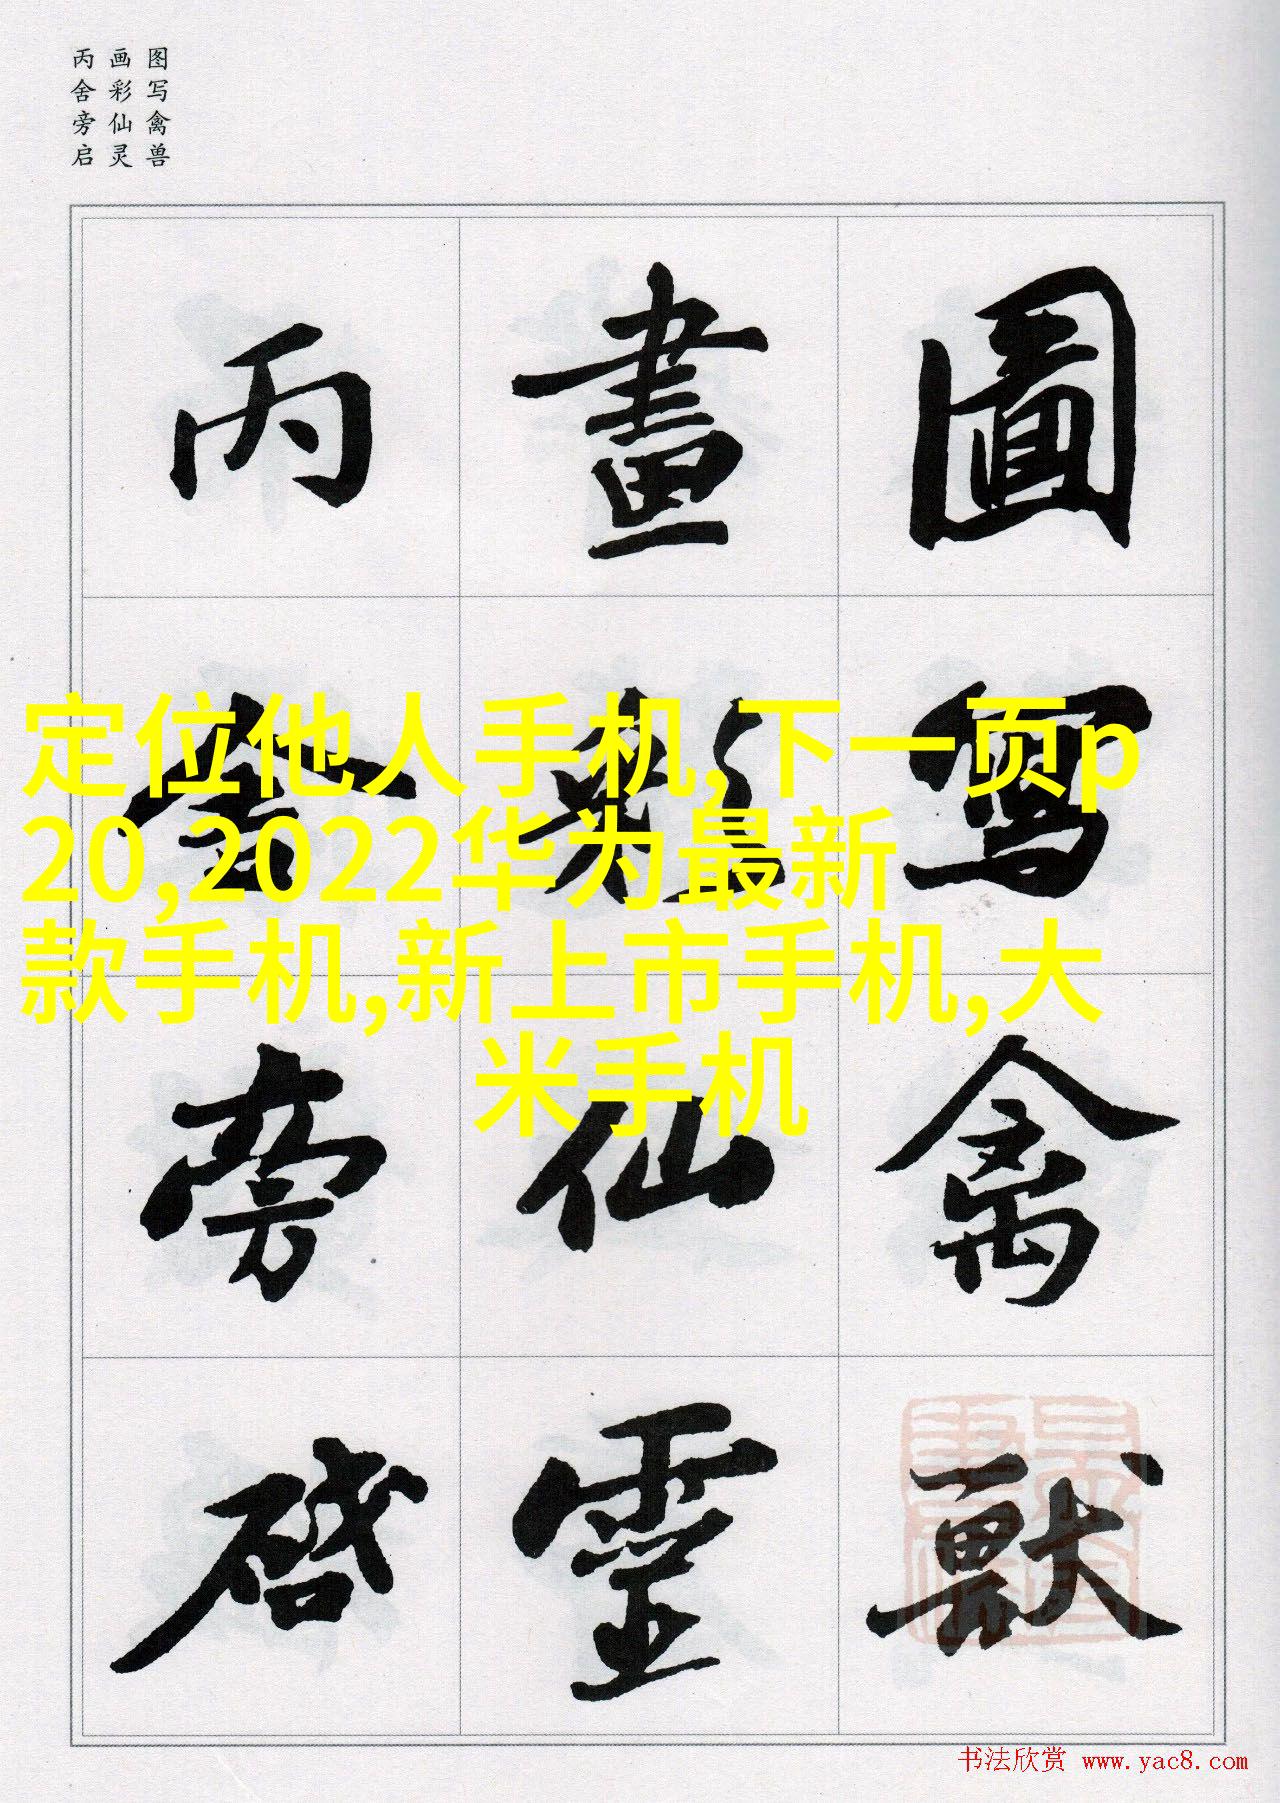 图写禽兽
画彩仙灵
丙舍旁启
圖寫禽獸
畫彩仙靈
丙舍旁啓
定位他人手机,下一页p
20,2022华为最新
款手机,新上市手机,大
米手机
书法欣赏 www.yac8.com